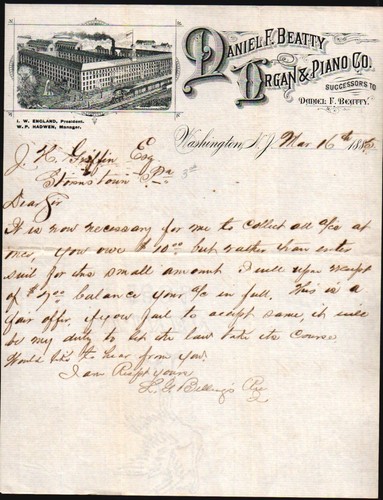 DANIEL F. BEATTY
ORGAN & PIANO CO.
SUCCESSORS TO
DANIEL F. BEATTY.
J. W. ENGLAND, President.
W. P. HADWEN, Manager.
Washington, N.J. Mar 16th 188
J. K. Griffin Esq
Stormstown Pa
Dear Sir
It is now necessary for me to collect all a/cs at
once, you owe $10.00 but rather than enter
suit for this small amount I will upon receipt
of $7.00 balance your a/c in full. This is a
fair offer, if you fail to accept same, it will
be my duty to let the law take its course
Would like to hear from you.
I am Respt yours
Billings